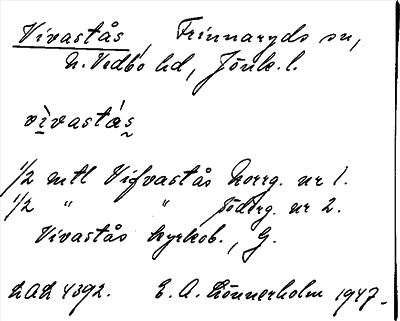 Vivastås, Frinnaryds sn,
N. Vedbo hd, Jönk. l.
vìvastá̀s
1/2 mtl Vifvastås Norrg. nr 1.
1/2 " " Söderg. nr 2.
Vivastås kyrkob., G.
LAL 4392. E. A. Lönnerholm 1947.